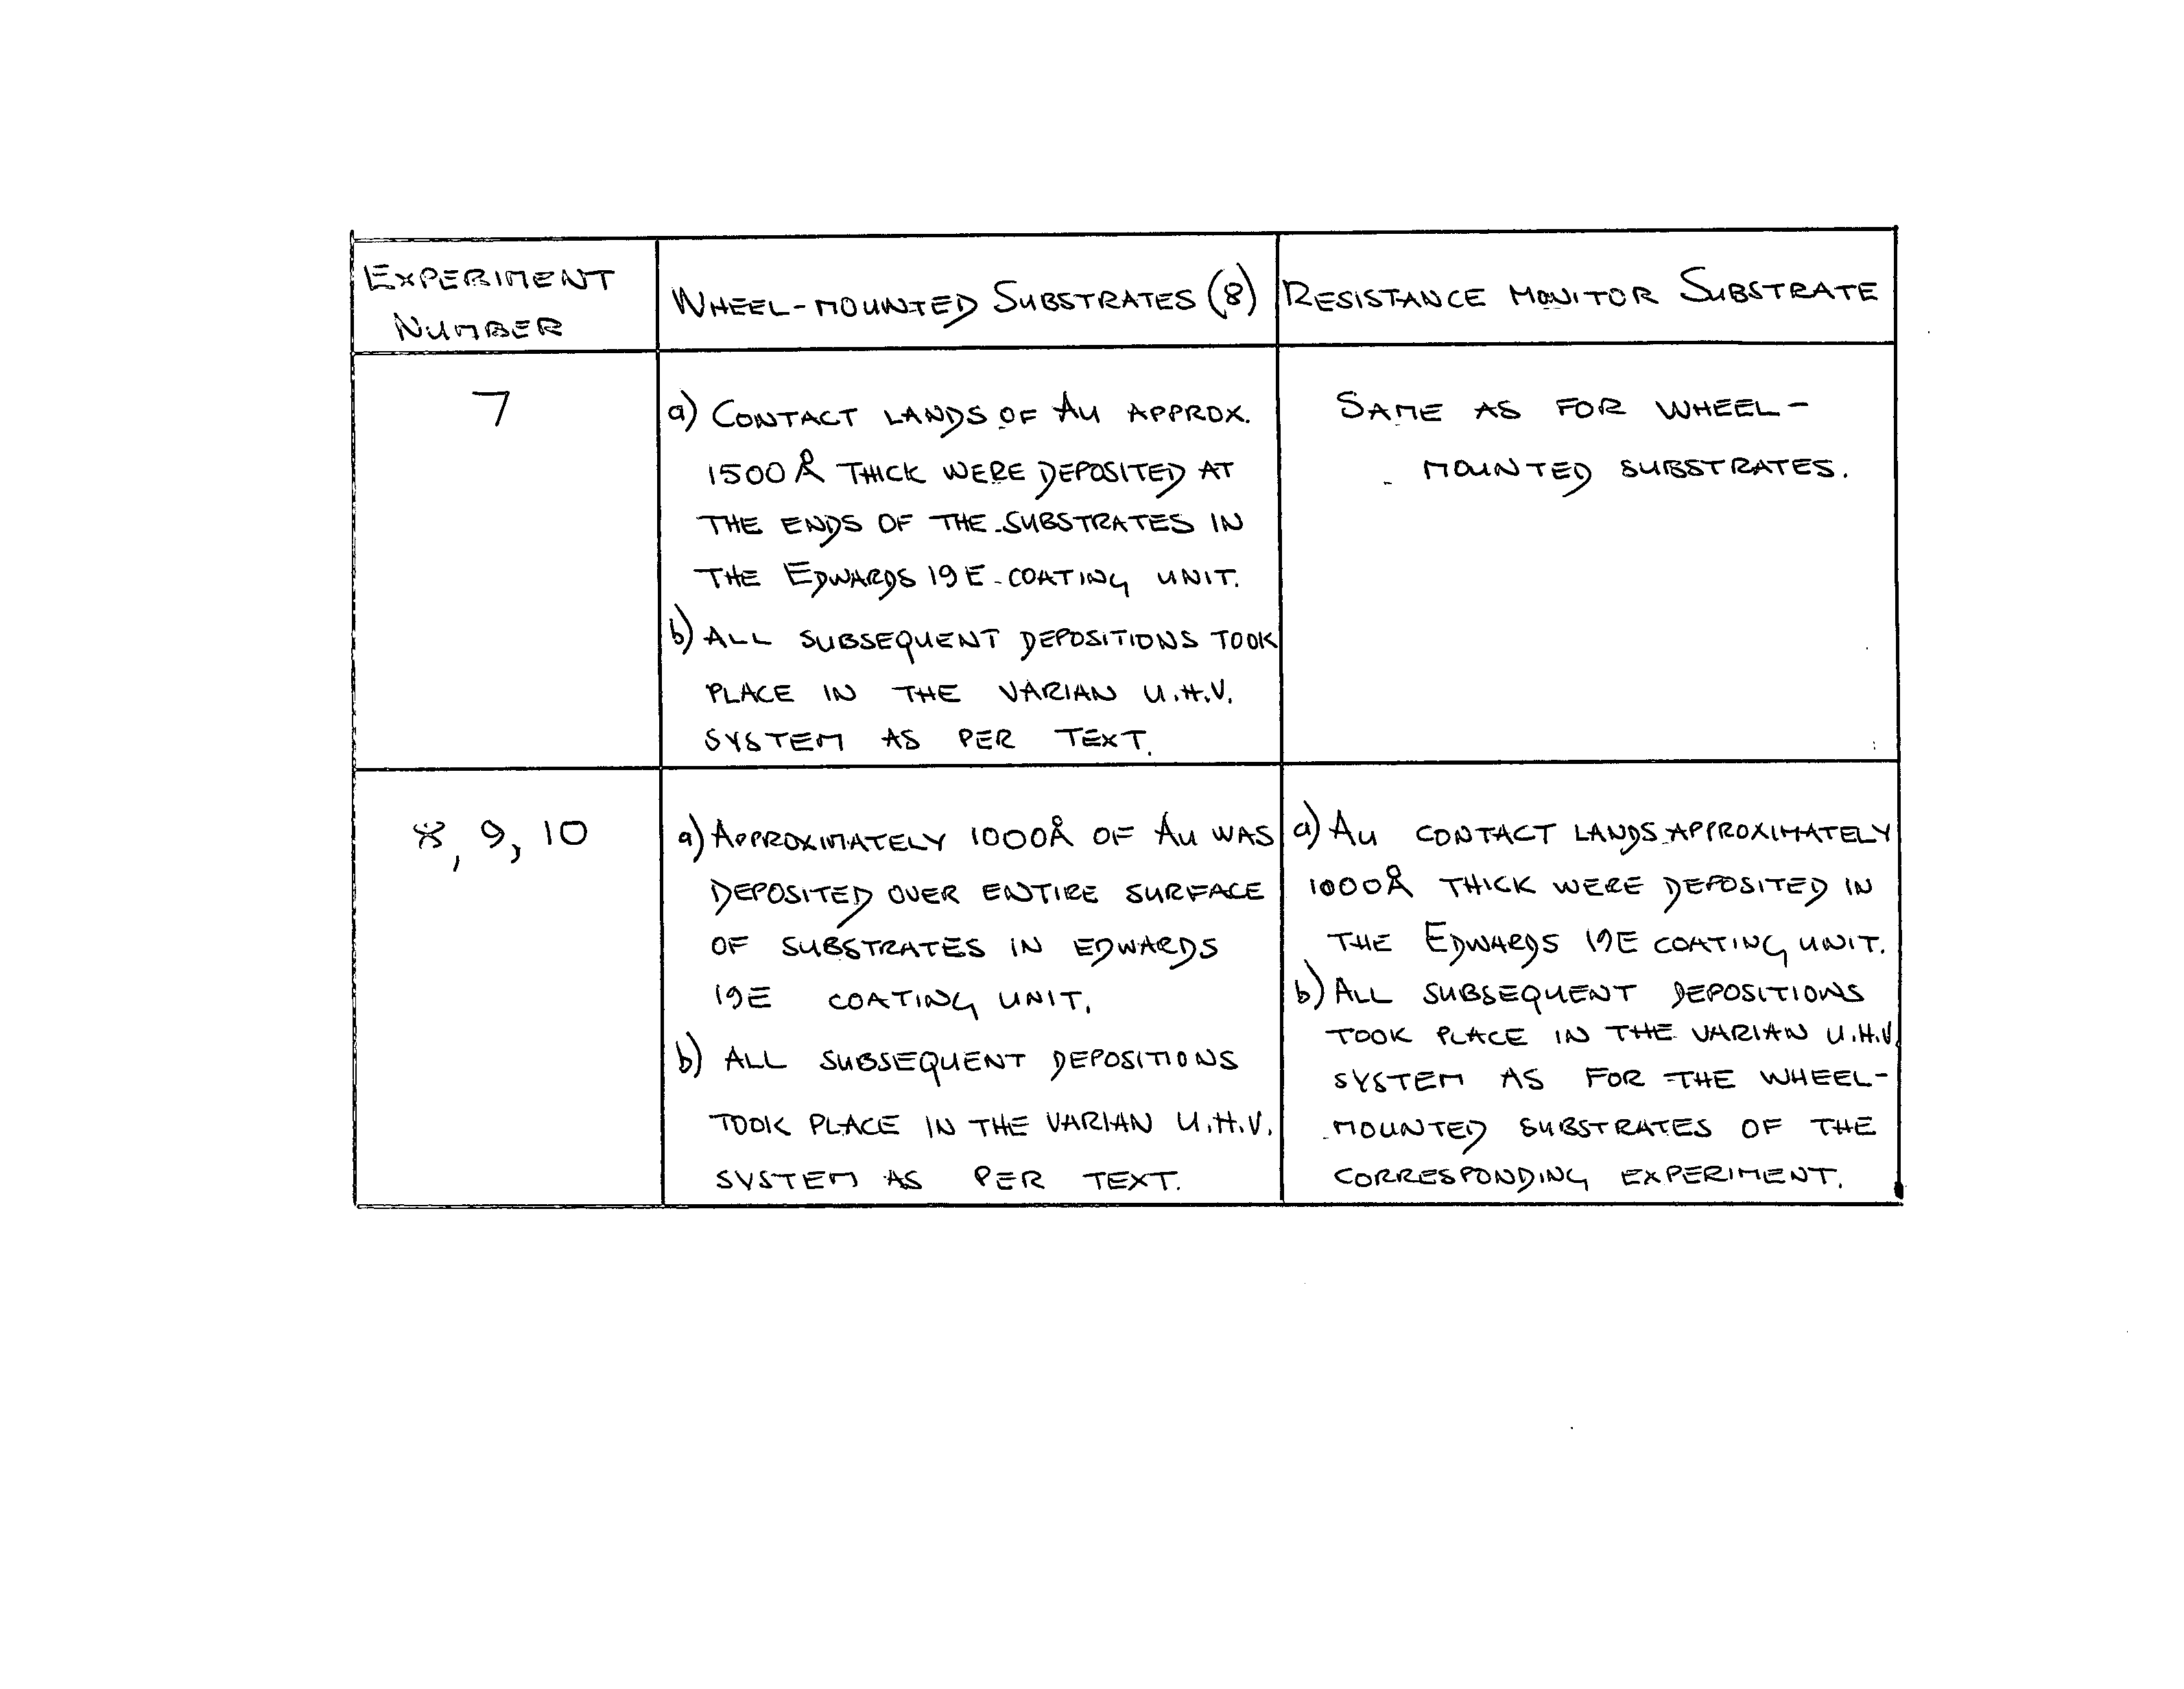 EXPERIMENT
NUMBER
WHEEL-MOUNTED SUBSTRATES (8)
RESISTANCE MONITOR SUBSTRATE
7
a) CONTACT LANDS OF Au APPROX.
1500 Å THICK WERE DEPOSITED AT
THE ENDS OF THE SUBSTRATES IN
THE EDWARDS 19E COATING UNIT.
b) ALL SUBSEQUENT DEPOSITIONS TOOK
PLACE IN THE VARIAN U.H.V.
SYSTEM AS PER TEXT.
SAME AS FOR WHEEL-
MOUNTED SUBSTRATES.
8, 9, 10
a) APPROXIMATELY 1000Å OF Au WAS
DEPOSITED OVER ENTIRE SURFACE
OF SUBSTRATES IN EDWARDS
19E COATING UNIT.
b) ALL SUBSEQUENT DEPOSITIONS
TOOK PLACE IN THE VARIAN U.H.V.
SYSTEM AS PER TEXT.
a) Au CONTACT LANDS APPROXIMATELY
1000Å THICK WERE DEPOSITED IN
THE EDWARDS 19E COATING UNIT.
b) ALL SUBSEQUENT DEPOSITIONS
TOOK PLACE IN THE VARIAN U.H.V
SYSTEM AS FOR THE WHEEL-
MOUNTED SUBSTRATES OF THE
CORRESPONDING EXPERIMENT.